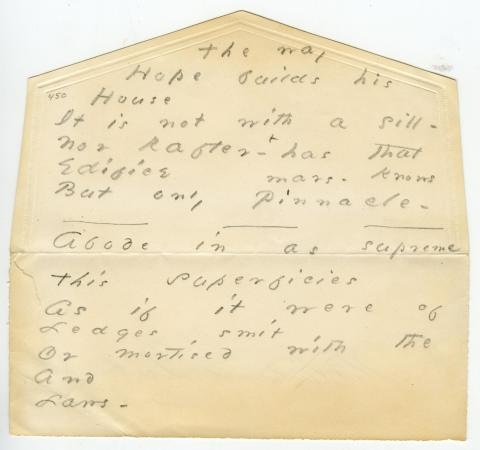 450
the way
Hope builds his
House
It is not with a sill -
Nor Rafter - + has that
Edifice mars - knows
But only Pinnacle -
Abode in as supreme
This superficies
As if it were of
Ledges smit
Or mortised with the
And
Laws -